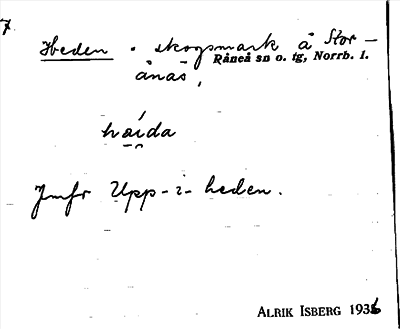 7
Heden. skogsmark å Stor-
ånäs,
Råneå sn o. tg, Norrb. l.
háida
Jmfr Upp-i-heden.
ALRIK ISBERG 1936